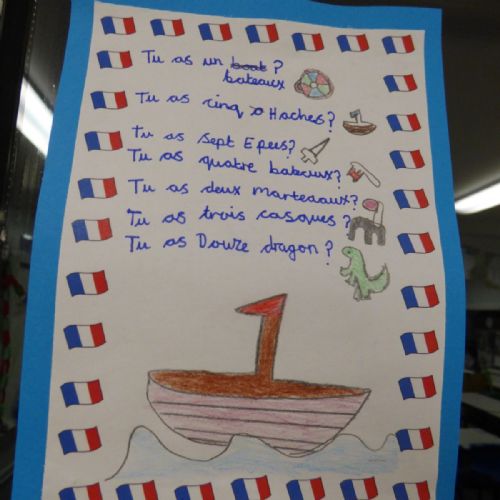 Tu as un boat ?
bateaux
Tu as cinq Haches?
tu as sept Epees?
Tu as quatre bateaux?
Tu as deux marteaaux?
Tu as trois casques?
Tu as Douze dragon?